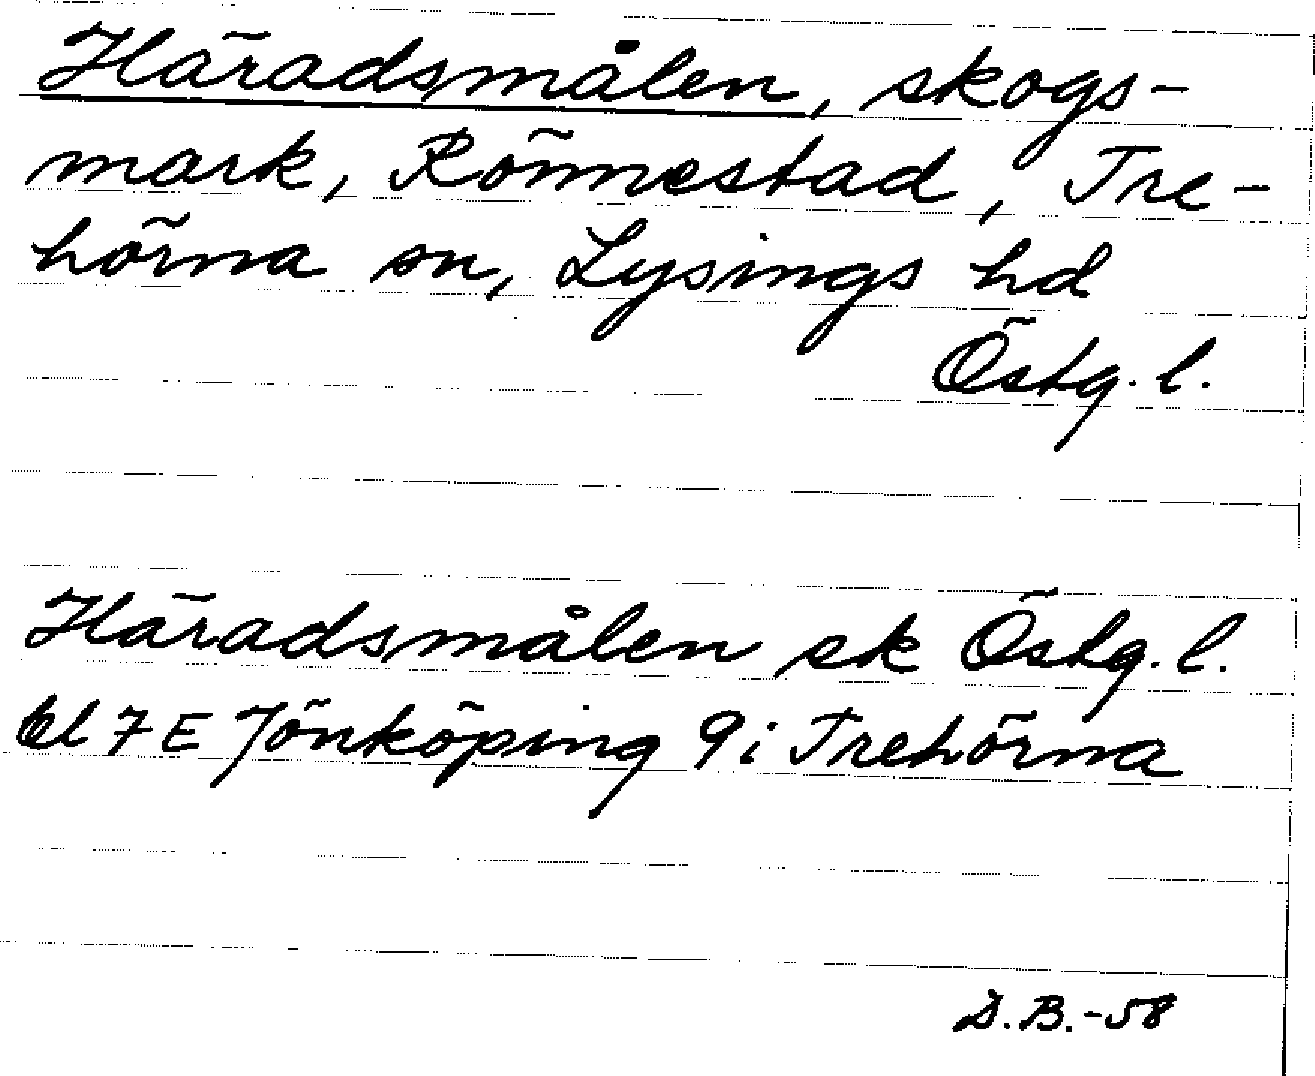 Häradsmålen, skogs-
mark, Rönnestad, Tre-
hörna sn, Lysings hd
Östg. l.
Häradsmålen sk Östg. l.
bl 7 E Jönköping 9 i Trehörna
D.B.-58